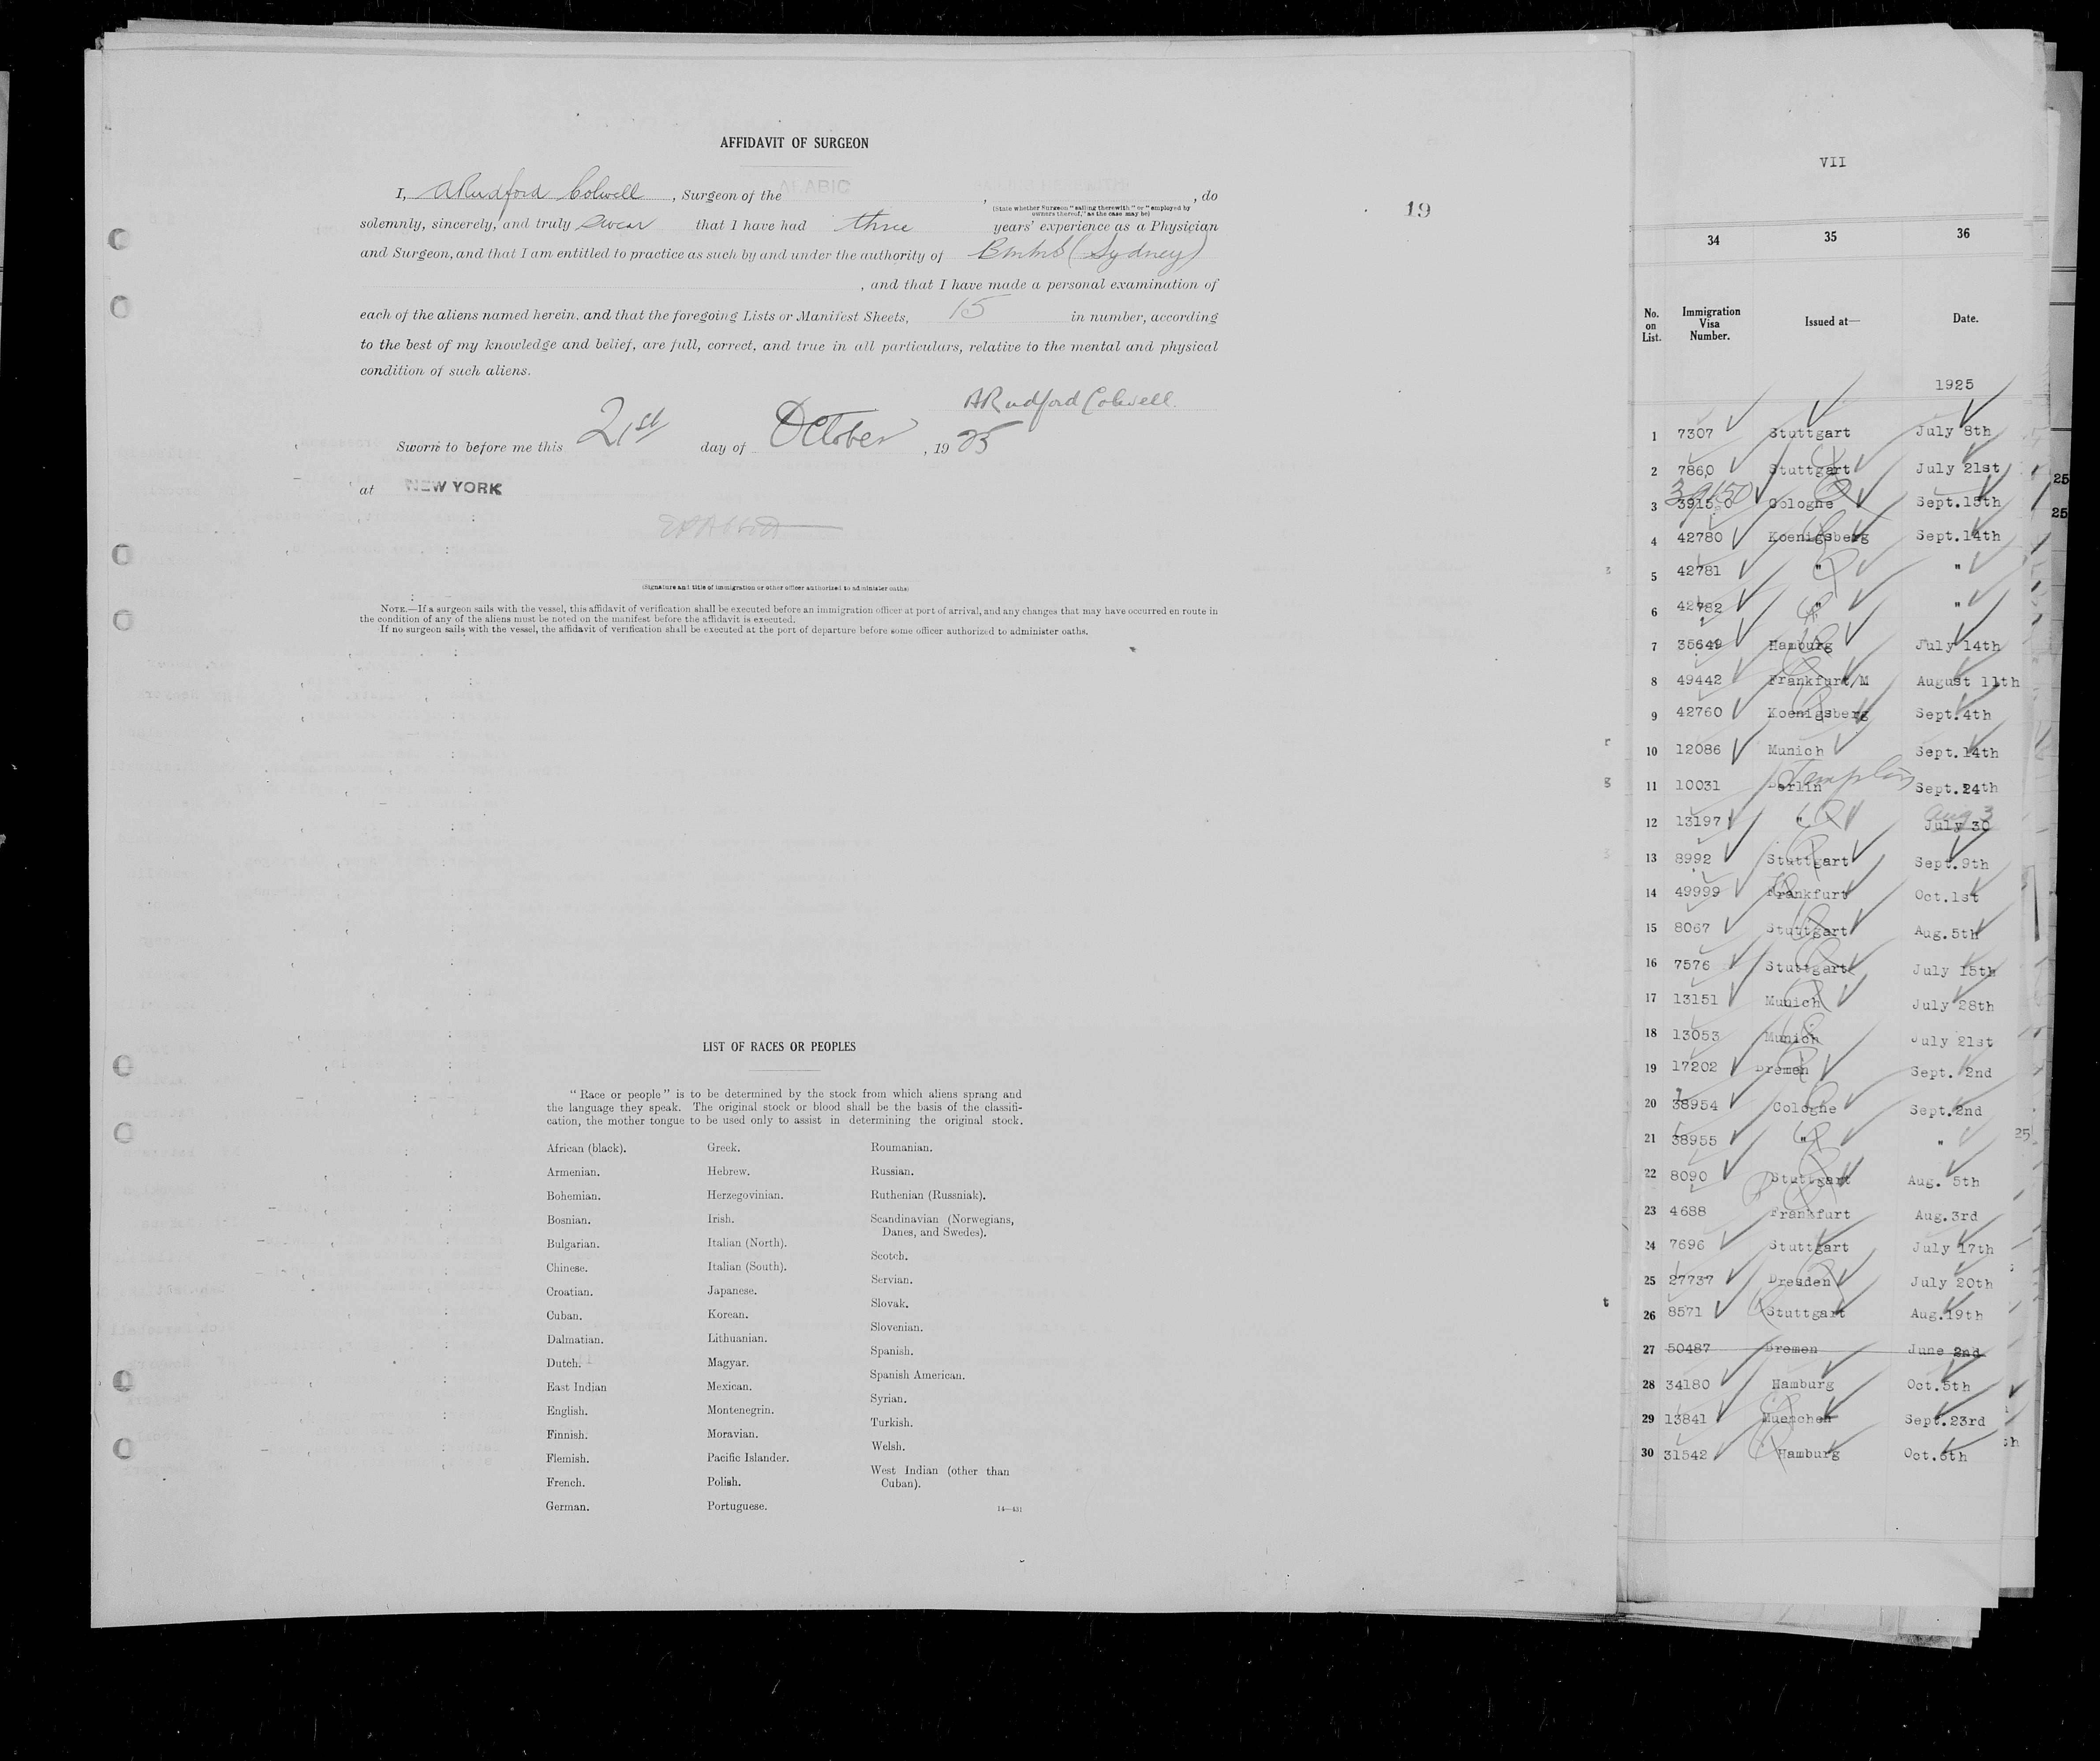 AFFIDAVIT OF SURGEON
I, A Rudford Colwell, Surgeon of the ARABIC, SAILING THEREWITH, do
(State whether Surgeon "sailing therewith" or "employed by owners thereof," as the case may be)
solemnly, sincerely, and truly swear that I have had three years' experience as a Physician
and Surgeon, and that I am entitled to practice as such by and under the authority of (Sydney)
, and that I have made a personal examination of
each of the aliens named herein, and that the foregoing Lists or Manifest Sheets, 15 in number, according
to the best of my knowledge and belief, are full, correct, and true in all particulars, relative to the mental and physical
condition of such aliens.
A Rudford Colwell.
Sworn to before me this 21st day of October, 1925
at NEW YORK
(Signature and title of immigration or other officer authorized to administer oaths)
NOTE.—If a surgeon sails with the vessel, this affidavit of verification shall be executed before an immigration officer at port of arrival, and any changes that may have occurred en route in
the condition of any of the aliens must be noted on the manifest before the affidavit is executed.
If no surgeon sails with the vessel, the affidavit of verification shall be executed at the port of departure before some officer authorized to administer oaths.
19
LIST OF RACES OR PEOPLES
"Race or people" is to be determined by the stock from which aliens sprang and
the language they speak. The original stock or blood shall be the basis of the classifi-
cation, the mother tongue to be used only to assist in determining the original stock.
African (black).
Armenian.
Bohemian.
Bosnian.
Bulgarian.
Chinese.
Croatian.
Cuban.
Dalmatian.
Dutch.
East Indian
English.
Finnish.
Flemish.
French.
German.
Greek.
Hebrew.
Herzegovinian.
Irish.
Italian (North).
Italian (South).
Japanese.
Korean.
Lithuanian.
Magyar.
Mexican.
Montenegrin.
Moravian.
Pacific Islander.
Polish.
Portuguese.
Roumanian.
Russian.
Ruthenian (Russniak).
Scandinavian (Norwegians,
Danes, and Swedes).
Scotch.
Servian.
Slovak.
Slovenian.
Spanish.
Spanish American.
Syrian.
Turkish.
Welsh.
West Indian (other than
Cuban).
14—431
VII
34 35 36
No. on List. Immigration Visa Number. Issued at— Date.
1925
1 7307 Stuttgart July 8th
2 7860 Stuttgart July 21st
39150
3 3915 0 Cologne Sept.15th
4 42780 Koenigsberg Sept.14th
5 42781 " "
6 42782 " "
7 35649 Hamburg July 14th
8 49442 Frankfurt/M August 11th
9 42760 Koenigsberg Sept.4th
10 12086 Munich Sept.14th
11 10031 Berlin Sept.24th
Aug 3
12 13197 " July 30
13 8992 Stuttgart Sept.9th
14 49999 Frankfurt Oct.1st
15 8067 Stuttgart Aug.5th
16 7576 Stuttgart July 15th
17 13151 Munich July 28th
18 13053 Munich July 21st
19 17202 Bremen Sept. 2nd
20 38954 Cologne Sept.2nd
21 38955 " "
22 8090 Stuttgart Aug. 5th
23 4688 Frankfurt Aug.3rd
24 7696 Stuttgart July 17th
25 27737 Dresden July 20th
26 8571 Stuttgart Aug.19th
27 50487 Bremen June 2nd
28 34180 Hamburg Oct.5th
29 13841 Muenchen Sept.23rd
30 31542 Hamburg Oct.6th
25
25
25